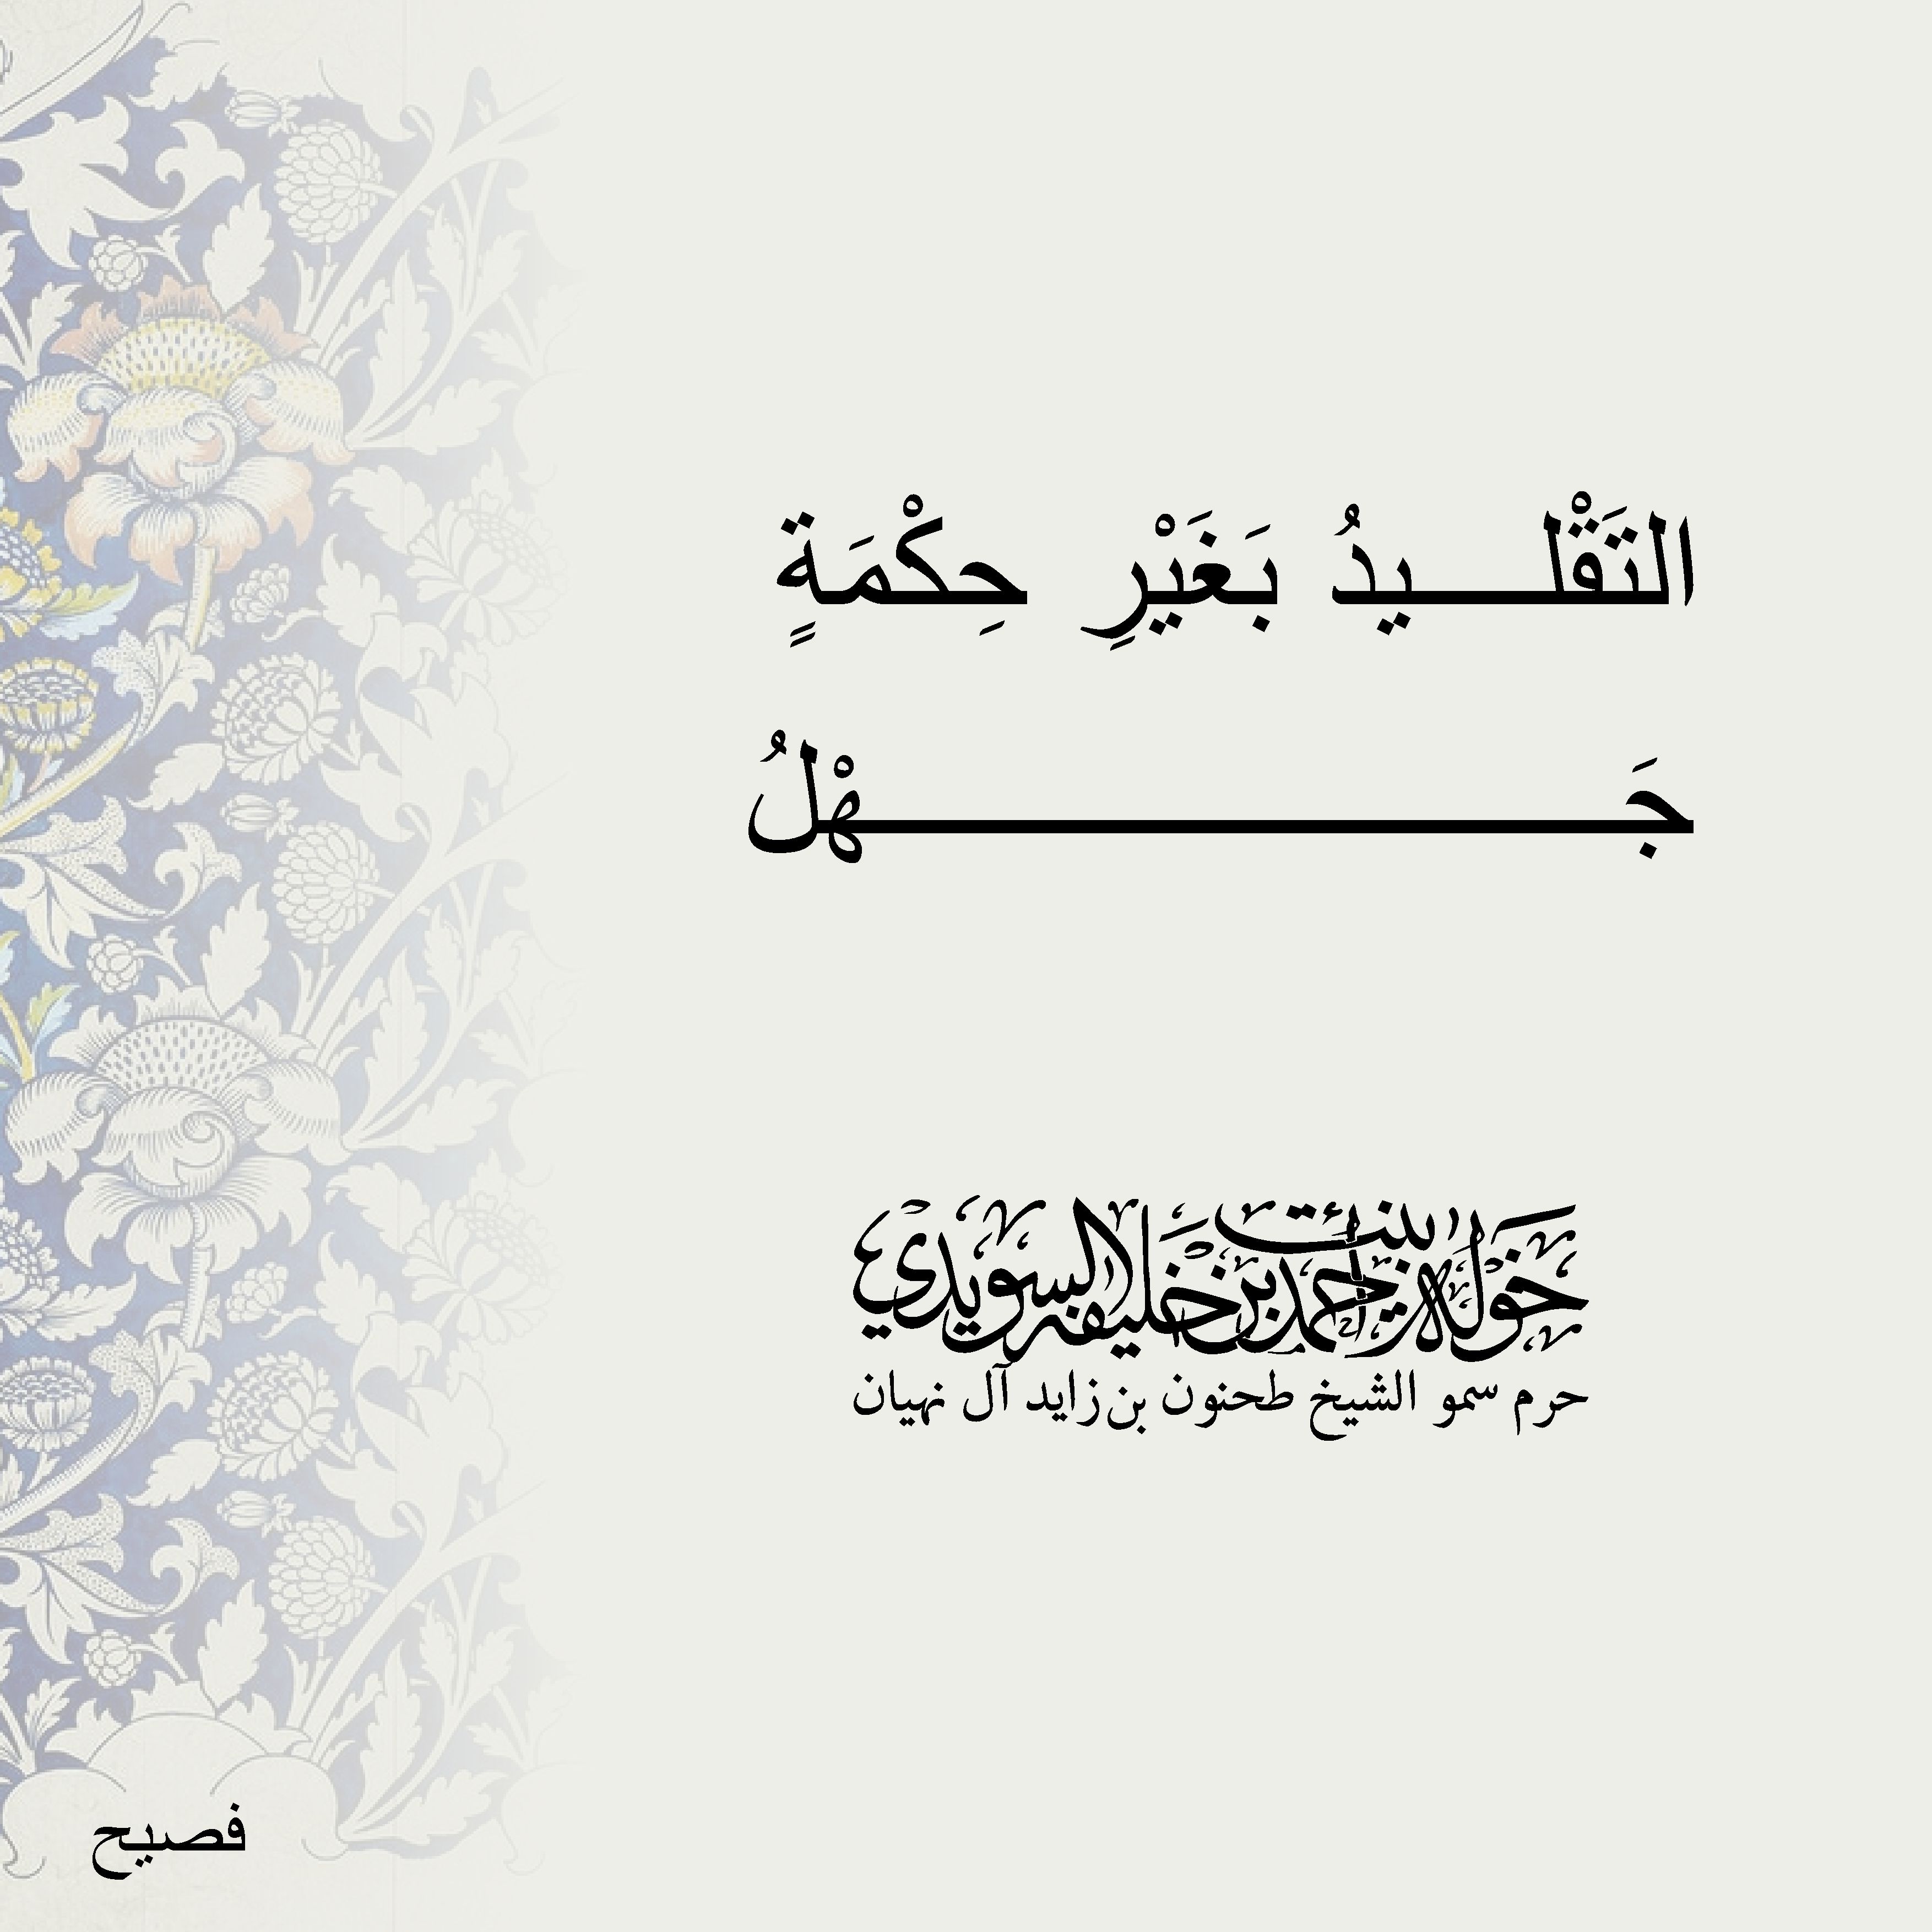 التَقْلـــيدُ بَغَيْرِ حِكْمَةٍ
جَـــــــــــــهْلُ
خولة بنت أحمد بن خليفه السويدي
حرم سمو الشيخ طحنون بن زايد آل نهيان
فصيح